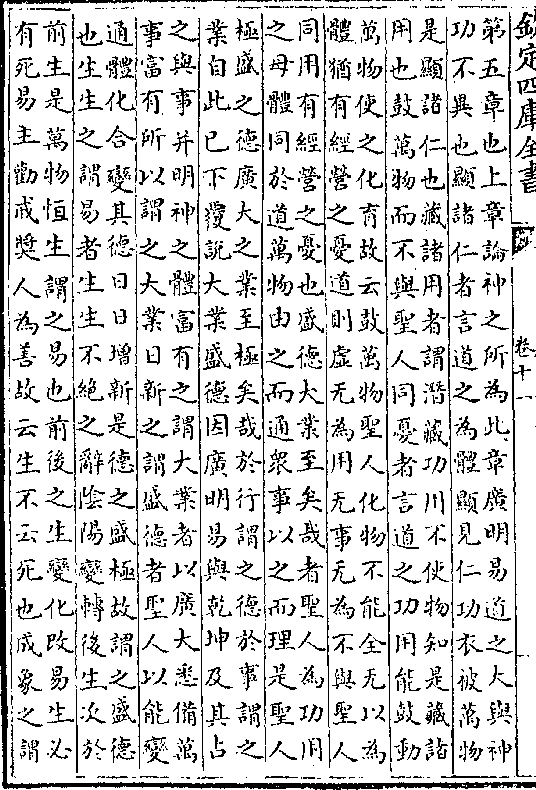 欽定四庫全書
卷十一
第五章也上章論神之所為此章廣明易道之大與神
功不異也顯諸仁者言道之為體顯見仁功衣被萬物
是顯諸仁也藏諸用者謂潛藏功用不使物知是藏諸
用也鼓萬物而不與聖人同憂者言道之功用能鼓動
萬物使之化育故云鼓萬物聖人化物不能全无以為
體猶有經營之憂道則虛无為用无事无為不與聖人
同用有經營之憂也盛德大業至矣哉者聖人為功用
之母體同於道萬物由之而通衆事以之而理是聖人
極盛之德廣大之業至極矣哉於行謂之德於事謂之
業自此已下覆說大業盛德因廣明易與乾坤及其占
之與事并明神之體富有之謂大業者以廣大悉備萬
事富有所以謂之大業日新之謂盛德者聖人以能變
通體化合變其德日日增新是德之盛極故謂之盛德
也生生之謂易者生生不絶之辭陰陽變轉後生次於
前生是萬物恒生謂之易也前後之生變化改易生必
有死易主勸戒奬人為善故云生不云死也成象之謂